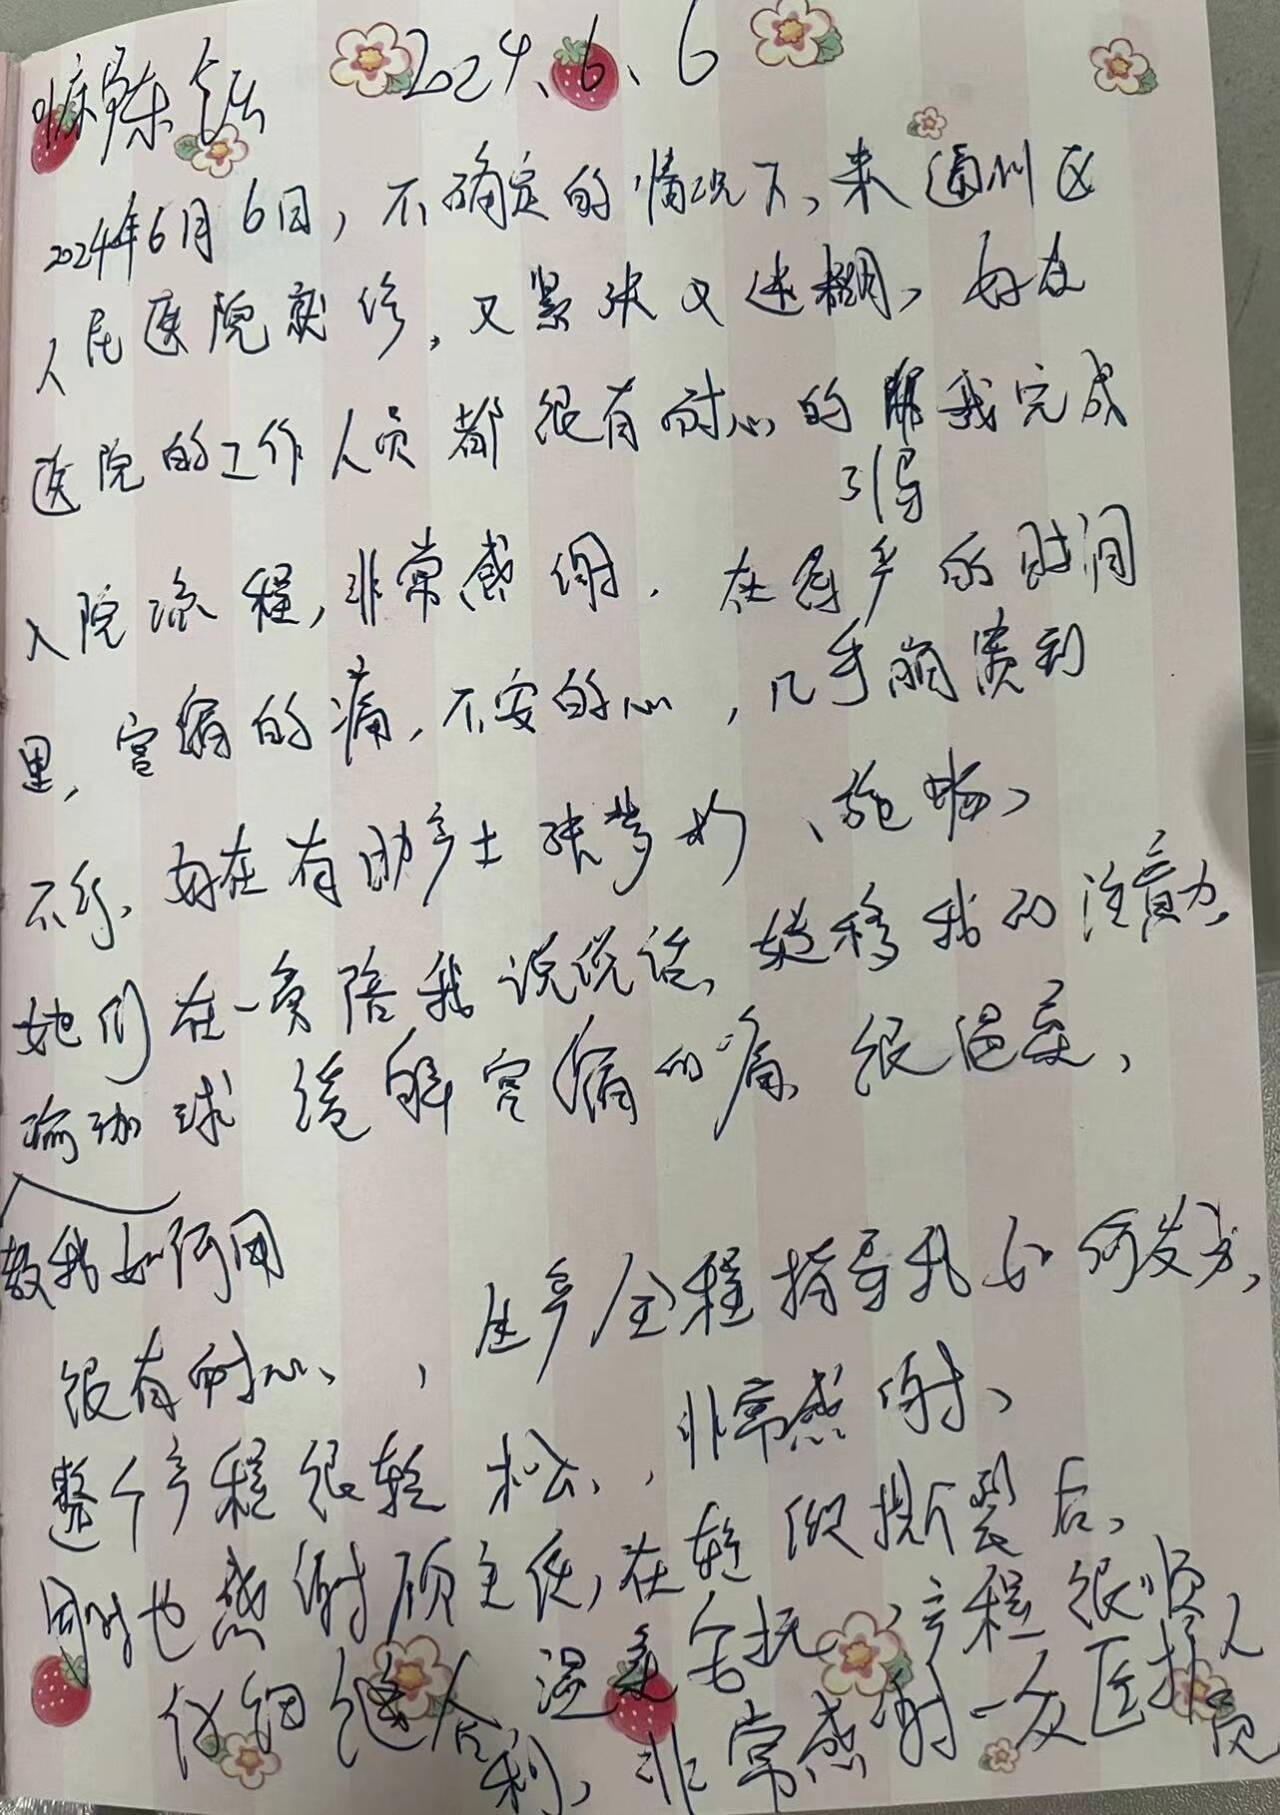 2024、6、6
2024年6月6日，不确定的情况下，来通州区
人民医院就诊，又紧张又迷糊，好在
医院的工作人员都很有耐心的帮我完成
引导
入院流程，非常感谢．在待产的时间
里，宫缩的痛，不安的心，几乎崩溃到
不行，好在有助产士张梦
她们在一旁陪我说说话，转移我的注意力，
瑜珈球缓解宫缩的痛，很温柔，
教我如何用
生产全程指导我如何发力，
很有耐心、，
整个产程很轻松、，非常感谢、
同时也感谢顾主任，在轻微撕裂后，
仔细缝合，温柔安抚，产程很顺
利，非常感谢一众医护人员